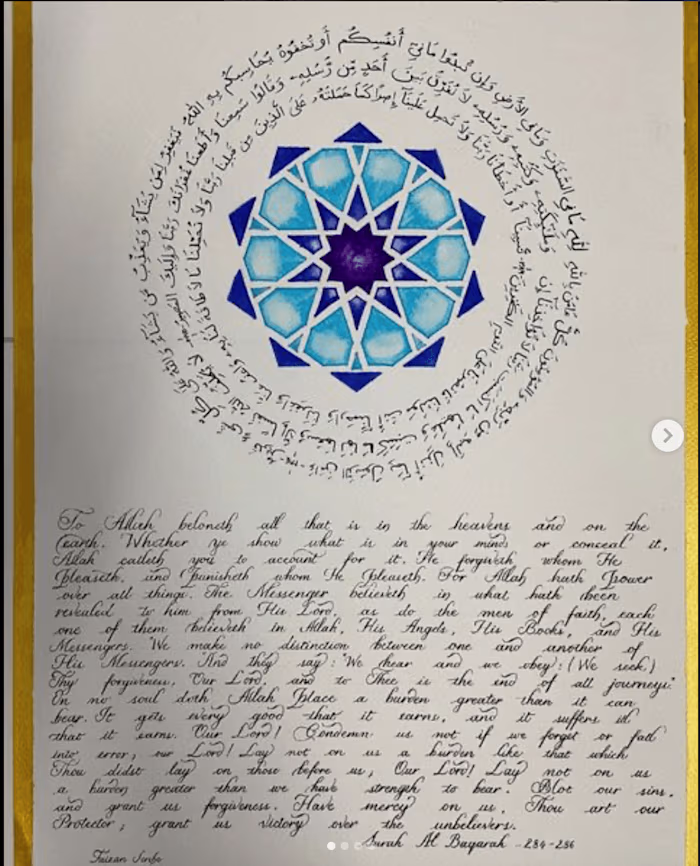 لِلَّهِ مَا فِي السَّمَٰوَٰتِ وَمَا فِي الْأَرْضِ وَإِن تُبْدُوا مَا فِي أَنفُسِكُمْ أَوْ تُخْفُوهُ يُحَاسِبْكُم بِهِ اللَّهُ فَيَغْفِرُ لِمَن يَشَاءُ وَيُعَذِّبُ مَن يَشَاءُ وَاللَّهُ عَلَىٰ كُلِّ شَيْءٍ قَدِيرٌ ءَامَنَ الرَّسُولُ بِمَا أُنزِلَ إِلَيْهِ مِن رَّبِّهِ وَالْمُؤْمِنُونَ كُلٌّ ءَامَنَ بِاللَّهِ
وَمَلَٰئِكَتِهِ وَكُتُبِهِ وَرُسُلِهِ لَا نُفَرِّقُ بَيْنَ أَحَدٍ مِّن رُّسُلِهِ وَقَالُوا سَمِعْنَا وَأَطَعْنَا غُفْرَانَكَ رَبَّنَا وَإِلَيْكَ الْمَصِيرُ لَا يُكَلِّفُ اللَّهُ نَفْسًا إِلَّا وُسْعَهَا لَهَا مَا كَسَبَتْ وَعَلَيْهَا مَا اكْتَسَبَتْ رَبَّنَا لَا تُؤَاخِذْنَا إِن
نَّسِينَا أَوْ أَخْطَأْنَا رَبَّنَا وَلَا تَحْمِلْ عَلَيْنَا إِصْرًا كَمَا حَمَلْتَهُ عَلَى الَّذِينَ مِن قَبْلِنَا رَبَّنَا وَلَا تُحَمِّلْنَا مَا لَا طَاقَةَ لَنَا بِهِ وَاعْفُ عَنَّا وَاغْفِرْ لَنَا وَارْحَمْنَا أَنتَ مَوْلَانَا فَانصُرْنَا عَلَى الْقَوْمِ الْكَٰفِرِينَ
To Allah beloneth all that is in the heavens and on the
Earth. Whether ye show what is in your minds or conceal it,
Allah calleth you to account for it. He forgiveth whom He
Pleaseth, and Punisheth whom He Pleaseth. For Allah hath Power
over all things. The Messenger believeth in what hath been
revealed to him from His Lord, as do the men of faith, each
one of them believeth in Allah, His Angels, His Books, and His
Messengers. We make no distinction between one and another of
His Messengers. And they say: "We hear and we obey: (We seek)
Thy forgiveness, Our Lord, and to Thee is the end of all journeys."
On no soul doth Allah Place a burden greater than it can
bear. It gets every good that it earns, and it suffers ill
that it earns. Our Lord! Condemn us not if we forget or fall
into error; our Lord! Lay not on us a burden like that which
Thou didst lay on those before us; Our Lord! Lay not on us
a burden greater than we have strength to bear. Blot our sins,
and grant us forgiveness. Have mercy on us. Thou art our
Protector; grant us victory over the unbelievers.
Surah Al Baqarah - 284-286
Faizan